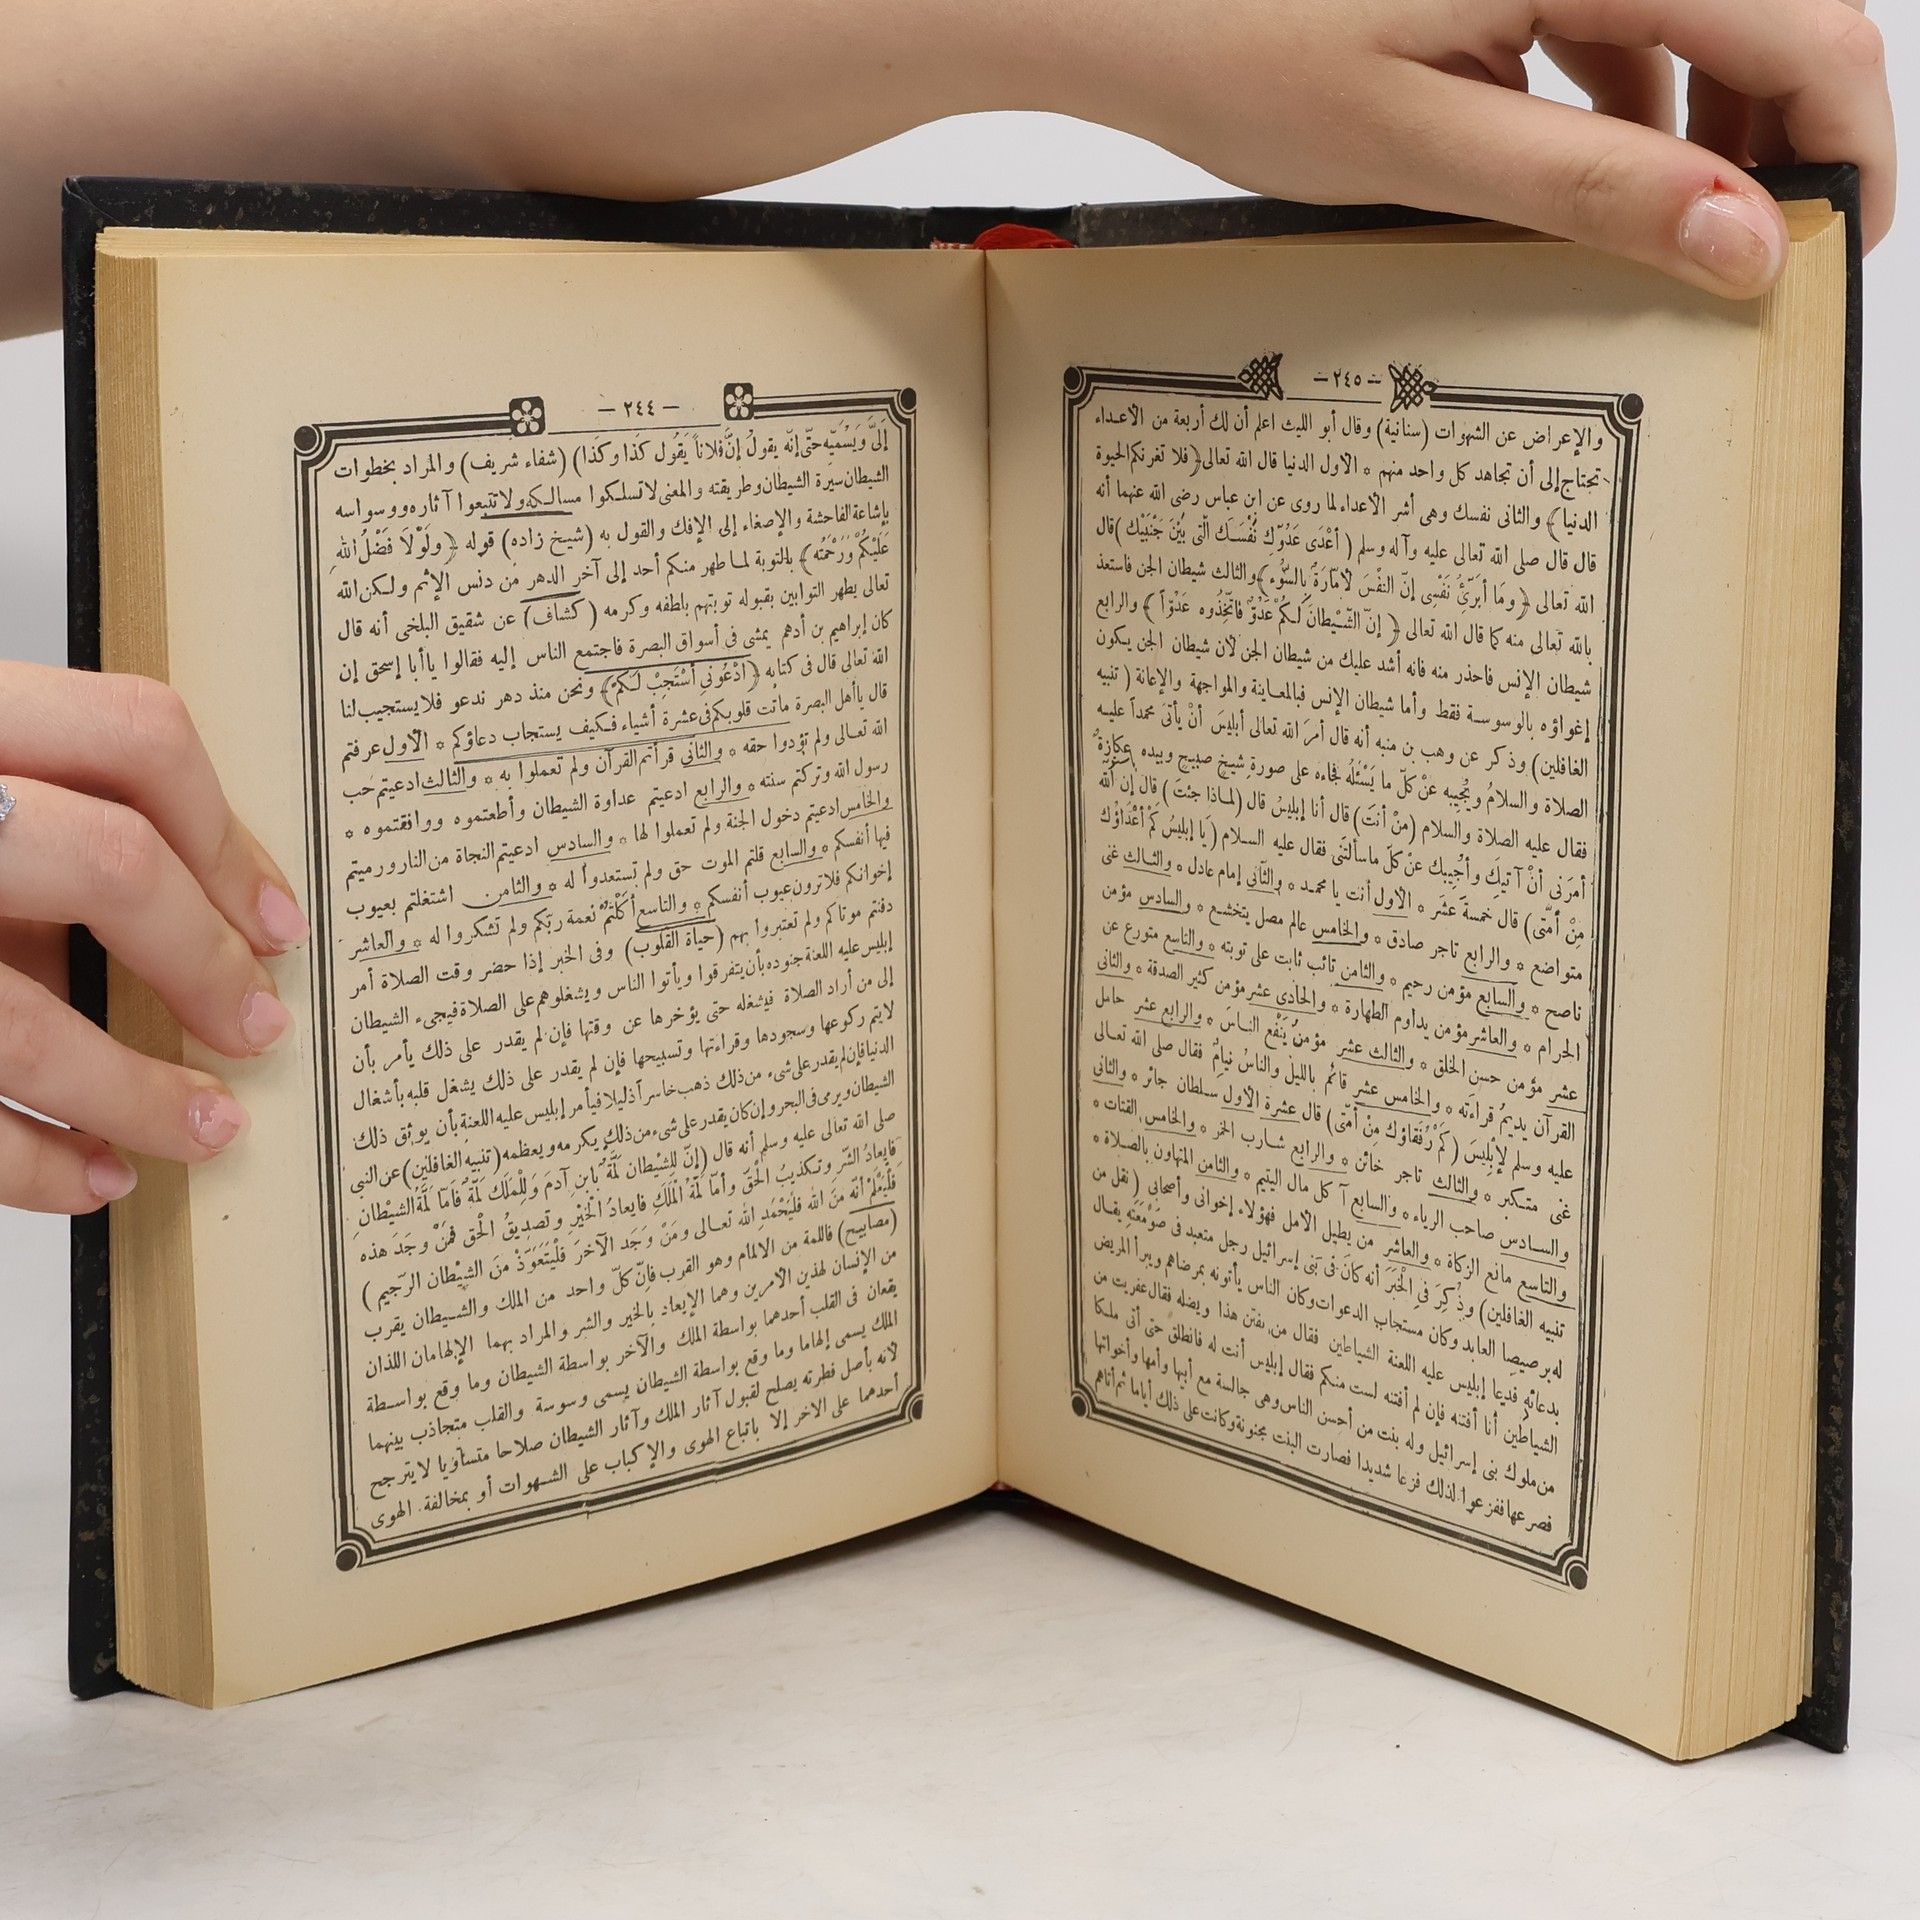 — ٢٤٤ —
إِلَىَّ وَيُسَمِّيهِ حتّى إنّه يقولُ إنَّ فلاناً يَقُول كَذَا وكَذَا) (شفاء شريف) والمراد بخطوات
الشيطان سيرة الشيطان وطريقته والمعنى لا تسلكوا مسالكه ولا تتبعوا آثاره ووسواسه
بإشاعة الفاحشة والإصغاء إلى الإفك والقول به (شيخ زاده) قوله ﴿ ولَوْلَا فَضْلُ اللهِ
عَلَيْكُمْ وَرَحْمَتُه ﴾ بالتوبة لما طهر منكم أحد إلى آخر الدهر من دنس الإثم ولكن الله
تعالى يطهر التوابين بقبوله توبتهم بلطفه وكرمه (كشاف) عن شقيق البلخى أنه قال
كان إبراهيم بن أدهم يمشى فى أسواق البصرة فاجتمع الناس إليه فقالوا يا أبا إسحق إن
الله تعالى قال فى كتابه ﴿ ادْعُونِي أَسْتَجِبْ لَكُمْ ﴾ ونحن منذ دهر ندعو فلا يستجيب لنا
قال يا أهل البصرة ماتت قلوبكم فى عشرة أشياء فكيف يستجاب دعاؤكم * الأول عرفتم
الله تعالى ولم تؤدوا حقه * والثانى قرأتم القرآن ولم تعملوا به * والثالث ادعيتم حب
رسول الله وتركتم سنته * والرابع ادعيتم عداوة الشيطان وأطعتموه ووافقتموه *
والخامس ادعيتم دخول الجنة ولم تعملوا لها * والسادس ادعيتم النجاة من النار ورميتم
فيها أنفسكم * والسابع قلتم الموت حق ولم تستعدوا له * والثامن اشتغلتم بعيوب
إخوانكم فلا ترون عيوب أنفسكم * والتاسع أكَلْتُم نعمة ربّكم ولم تشكروا له * والعاشر
دفنتم موتاكم ولم تعتبروا بهم (حياة القلوب) وفى الخبر إذا حضر وقت الصلاة أمر
إبليس عليه اللعنة جنوده بأن يتفرقوا ويأتوا الناس ويشغلوهم على الصلاة فيجىء الشيطان
إلى من أراد الصلاة فيشغله حتى يؤخرها عن وقتها فإن لم يقدر على ذلك يأمر بأن
لا يتم ركوعها وسجودها وقراءتها وتسبيحها فإن لم يقدر على ذلك يشغل قلبه بأشغال
الدنيا فإن لم يقدر على شىء من ذلك ذهب خاسراً ذليلا فيأمر إبليس عليه اللعنة بأن يوثق ذلك
الشيطان ويرمى فى البحر وإن كان يقدر على شىء من ذلك يكرمه ويعظمه (تنبيه الغافلين) عن النبي
صلى الله تعالى عليه وسلم أنه قال (إنّ لِلشيْطان لَمَّةً بابنِ آدَمَ وَلِلْمَلَك لَمَّةً فَأمّا لَمَّةُ الشيْطانِ
فإيعادٌ الشرّ وتكذيبُ الْحَقّ وأمّا لَمّةُ الْمَلَكِ فإيعادُ الْخَيْر وتصديقُ الْحَق فَمَنْ وجَدَ هذه
فَلْيَعْلَمْ أنّه مِنَ الله فلْيَحْمَدِ الله تعالى ومَنْ وَجَد الآخرَ فلْيَتَعَوّذْ منَ الشيْطان الرّجيم)
(مصابيح) فاللمة من الالمام وهو القرب فإنّ كلّ واحد من الملك والشيطان يقرب
من الإنسان لهذين الأمرين وهما الإيعاد بالخير والشر والمراد بهما الإلهامان اللذان
يقعان فى القلب أحدهما بواسطة الملك والآخر بواسطة الشيطان وما وقع بواسطة
الملك يسمى إلهاما وما وقع بواسطة الشيطان يسمى وسوسة والقلب متجاذب بينهما
لأنه بأصل فطرته يصلح لقبول آثار الملك وآثار الشيطان صلاحا متساويا لا يترجح
أحدهما على الآخر إلا باتباع الهوى والإكباب على الشهوات أو بمخالفة الهوى
— ٢٤٥ —
والإعراض عن الشهوات (سنانية) وقال أبو الليث اعلم أن لك أربعة من الأعداء
تحتاج إلى أن تجاهد كل واحد منهم * الأول الدنيا قال الله تعالى ﴿ فلا تغرنكم الحيوة
الدنيا ﴾ والثانى نفسك وهى أشر الأعداء لما روى عن ابن عباس رضى الله عنهما أنه
قال قال صلى الله تعالى عليه وآله وسلم (أعْدَى عَدُوّكِ نَفْسَك الّتى بَيْنَ جَنْبَيْك) قال
الله تعالى ﴿ ومَا أبَرّئُ نَفْسِى إنّ النفْسَ لأمّارَةٌ بِالسُّوء ﴾ والثالث شيطان الجن فاستعذ
بالله تعالى منه كما قال الله تعالى ﴿ إنّ الشّيْطانَ لَكُمْ عَدُوٌّ فاتَّخِذُوه عَدُوّاً ﴾ والرابع
شيطان الإنس فاحذر منه فانه أشد عليك من شيطان الجن لأن شيطان الجن يكون
إغواؤه بالوسوسة فقط وأما شيطان الإنس فبالمعاينة والمواجهة والإعانة (تنبيه
الغافلين) وذكر عن وهب بن منبه أنه قال أمرَ الله تعالى أبليسَ أنْ يأتىَ محمداً عليه
الصلاة والسلامُ ويُجيبه عنْ كلّ ما يَسْئَلُه فجاءه على صورةِ شيخٍ صبيح وبيده عكازةٌ
فقال عليه الصلاة والسلام (منْ أنتَ) قال أنا إبليسُ قال (لماذا جئتَ) قال إن الله
أمرَنى أنْ آتيكَ وأجيبك عنْ كلّ ما سألتَنى فقال عليه السلام (يَا إبليسُ كَمْ أعْدَاؤُك
مِنْ أمّتى) قال خمسةَ عشَر * الأول أنت يا محمد * والثانى إمام عادل * والثالث غنى
متواضع * والرابع تاجر صادق * والخامس عالم مصل يتخشع * والسادس مؤمن
ناصح * والسابع مؤمن رحيم * والثامن تائب ثابت على توبته * والتاسع متورع عن
الحرام * والعاشر مؤمن يداوم الطهارة * والحادى عشر مؤمن كثير الصدقة * والثانى
عشر مؤمن حسن الخلق * والثالث عشر مؤمنٌ يَنْفع الناسَ * والرابع عشر حامل
القرآن يديمُ قراءته * والخامس عشر قائم بالليل والناسُ نيامٌ فقال صلى الله تعالى
عليه وسلم لإبْلِيسَ (كَمْ رُفَقاؤك مِنْ أمّتى) قال عشرة الأول سلطان جائر * والثانى
غنى متكبر * والثالث تاجر خائن * والرابع شارب الخمر * والخامس القتات *
والسادس صاحب الرياء * والسابع آكل مال اليتيم * والثامن المتهاون بالصلاة *
والتاسع مانع الزكاة * والعاشر من يطيل الأمل فهؤلاء إخوانى وأصحابى (نقل من
تنبيه الغافلين) وذُكِرَ فى الْخَبَرَ أنه كانَ فى بَنى إسرائيل رجل متعبد فى صَوْمَعَتِه يقال
له برصيصا العابد وكان مستجاب الدعوات وكان الناس يأتونه بمرضاهم ويبرأ المريض
بدعائه فدعا إبليس عليه اللعنة الشياطين فقال من يفتن هذا ويضله فقال عفريت من
الشياطين أنا أفتنه فإن لم أفتنه لست منكم فقال إبليس أنت له فانطلق حتى أتى ملكا
من ملوك بنى إسرائيل وله بنت من أحسن الناس وهى جالسة مع أبيها وأمها وأخواتها
فصرعها ففزعوا لذلك فزعا شديدا فصارت البنت مجنونة وكانت على ذلك أياما ثم أتاهم